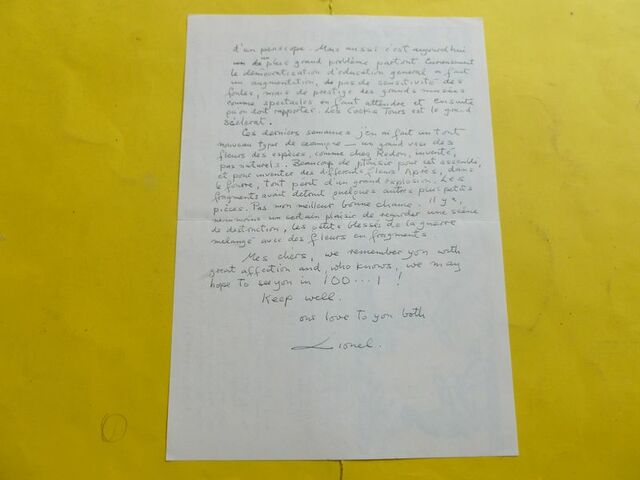 d'un periscope. Mais aussi c'est aujourd'hui
un plus grand problème partout. Curieusement
le démocratisation d'éducation general a fait
un augmentation, de pas de sensitivité des
foules, mais de prestige des grands musées
comme spectacles on faut attendre et ensuite
qu'on doit rapporter. Les Cooks Tours est le grand
Scelerat.
Ces derniers semaines j'en ai fait un tout
nouveau type de ceramique — un grand vase des
fleurs des espèces, comme chez Redon, inventé,
pas naturels. Beaucoup de plaisir pour cet assemblé,
et pour inventer des differents fleurs. Après, dans
le fourre, tout part d'un grand explosion. Les
fragments avait detruit quelques autres plus petits
pièces. Pas mon meilleur bonne chance. Il y a,
neanmoins un certain plaisir de regarder une scène
de distruction, les petits blessés de la guerre
melangé avec des fleurs en fragments.
Mes chers, we remember you with
great affection and, who knows, we may
hope to see you in 100...1!
Keep well.
our love to you both
Lionel.